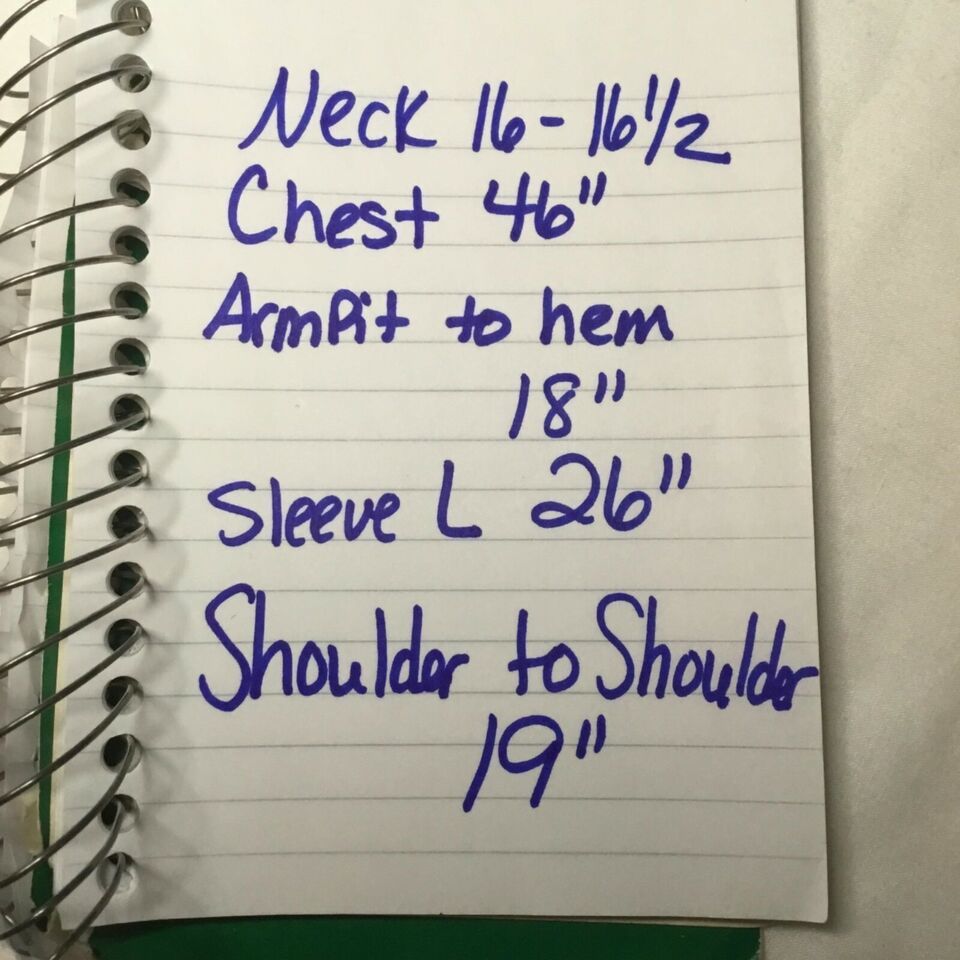 Neck 16-16 1/2
Chest 46"
ArmPit to hem
18"
Sleeve L 26"
Shoulder to Shoulder
19"